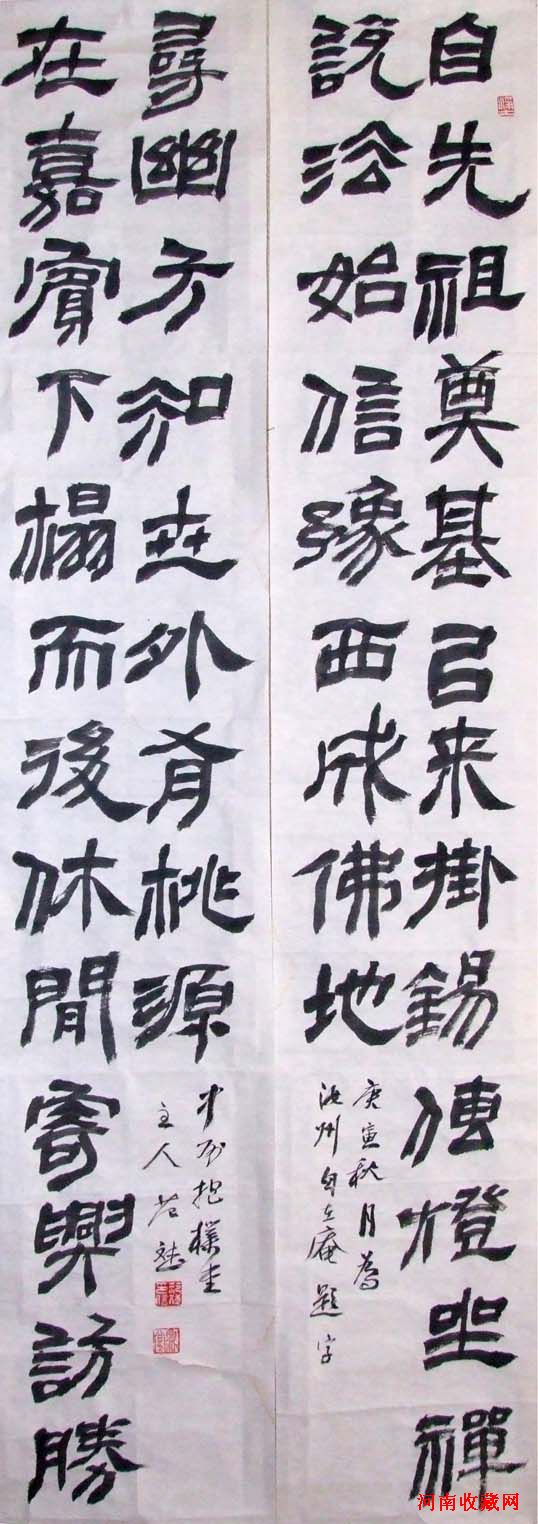 自先祖奠基㠯来掛錫傳燈坐禪
說法始信豫西成佛地
庚寅秋月為
汝州自在庵題字
在嘉賓下榻而後休閒寄興訪勝
尋幽方知世外有桃源
中原抱樸堂
主人
河南收藏网